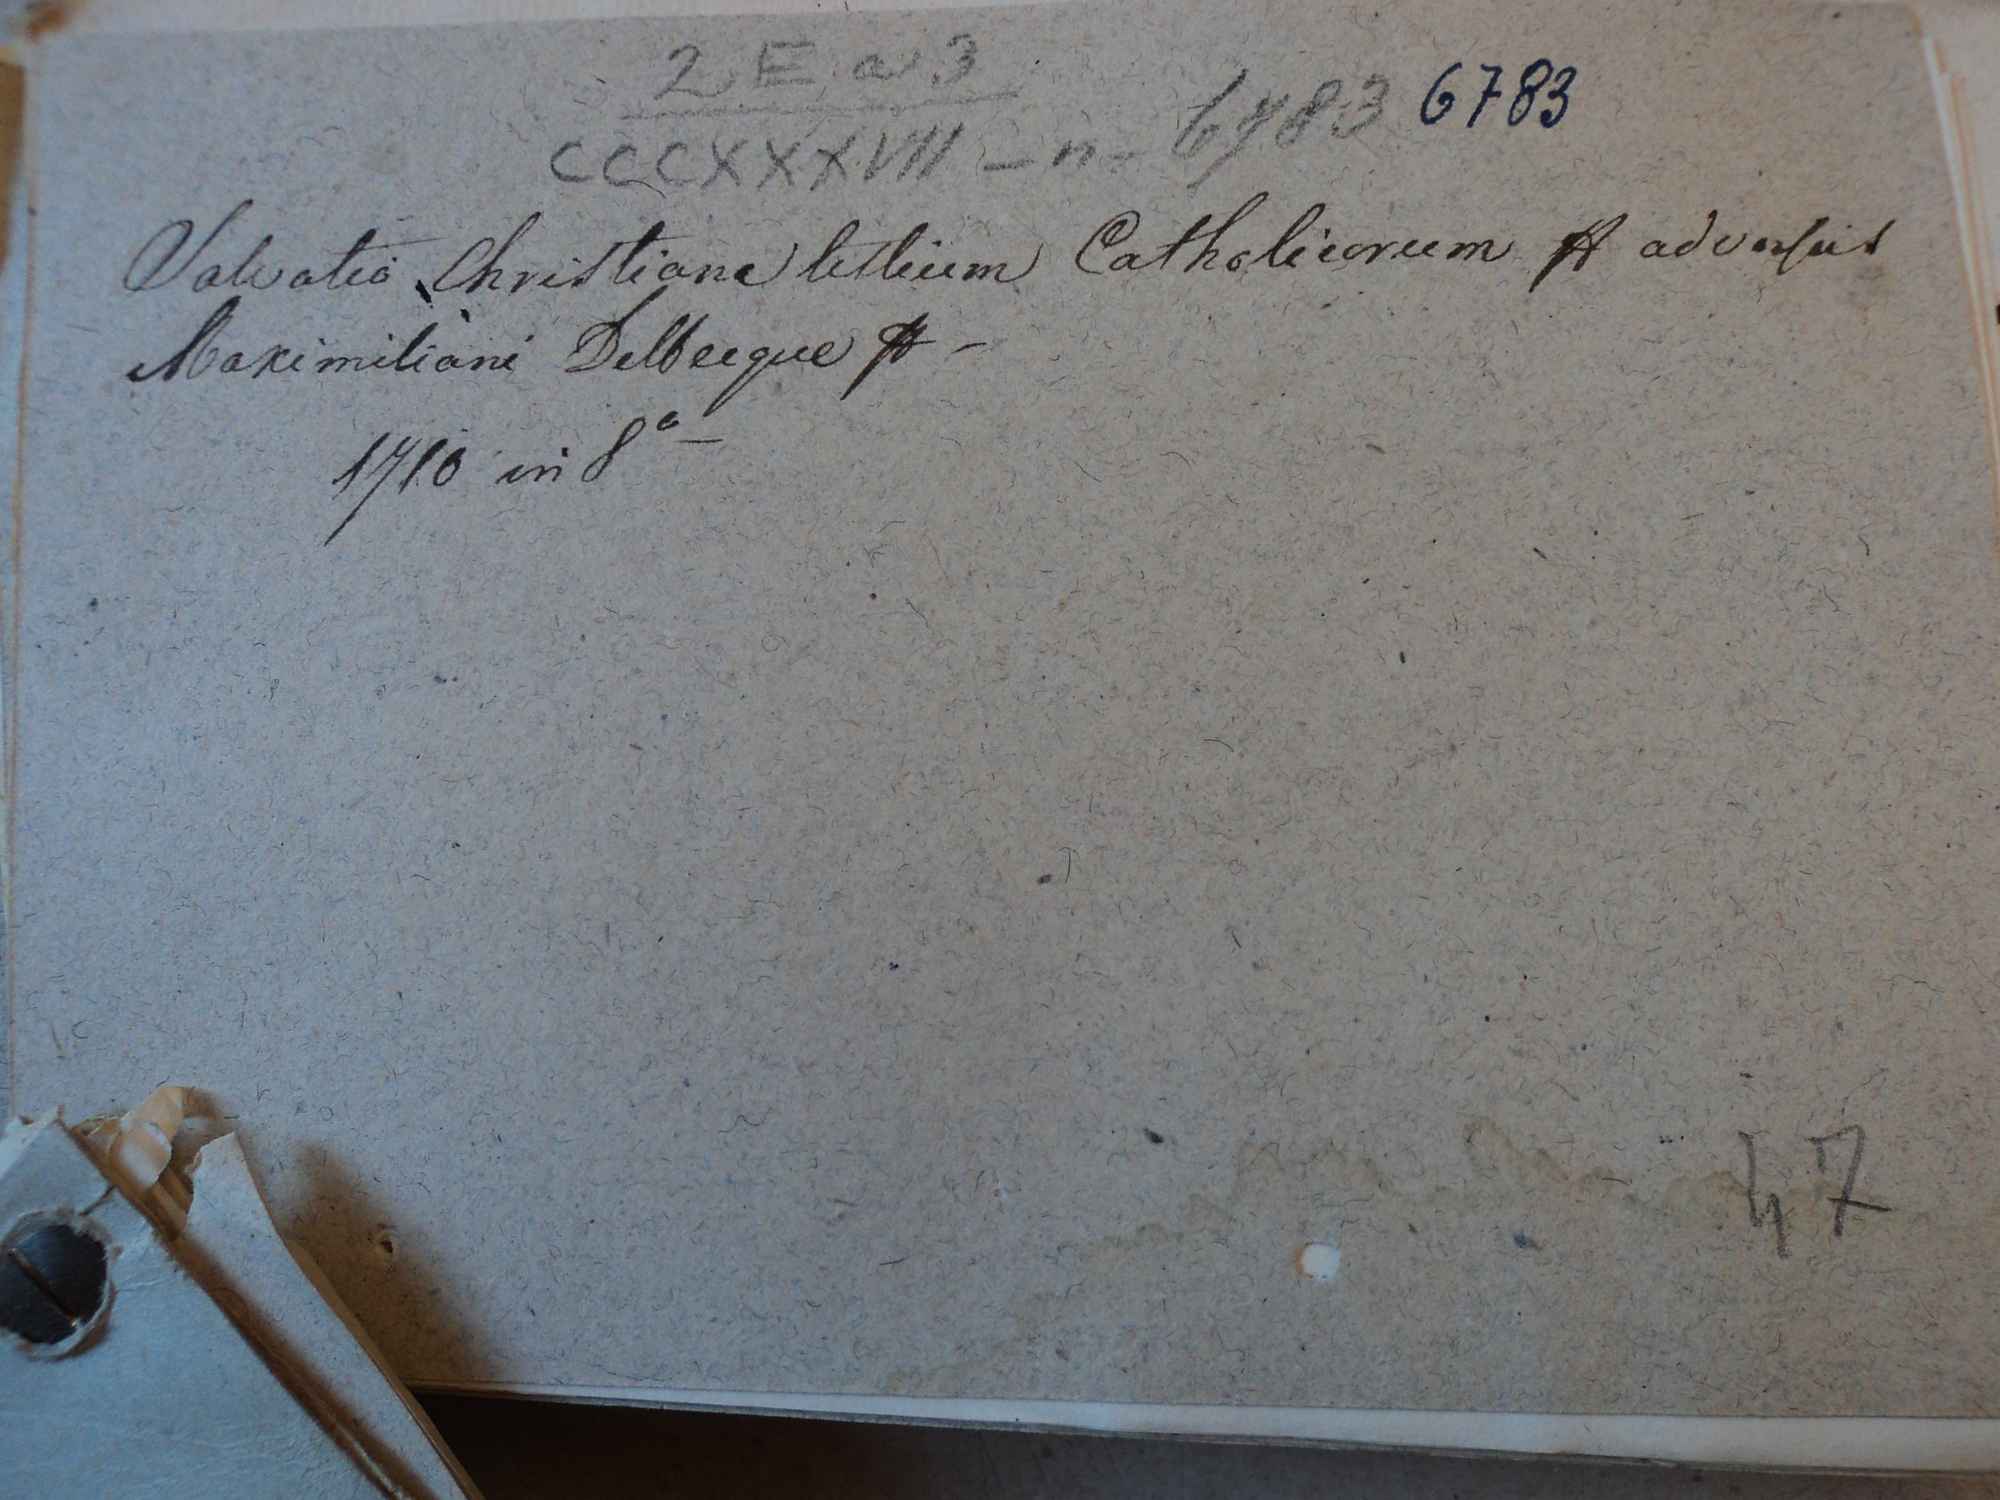 2 E a 3
CCCXXXVII - n- 6783 6783
Salvatio Christiana Catholicorum # adversus
Maximiliani Delbecque # -
1710 in 8°-
47